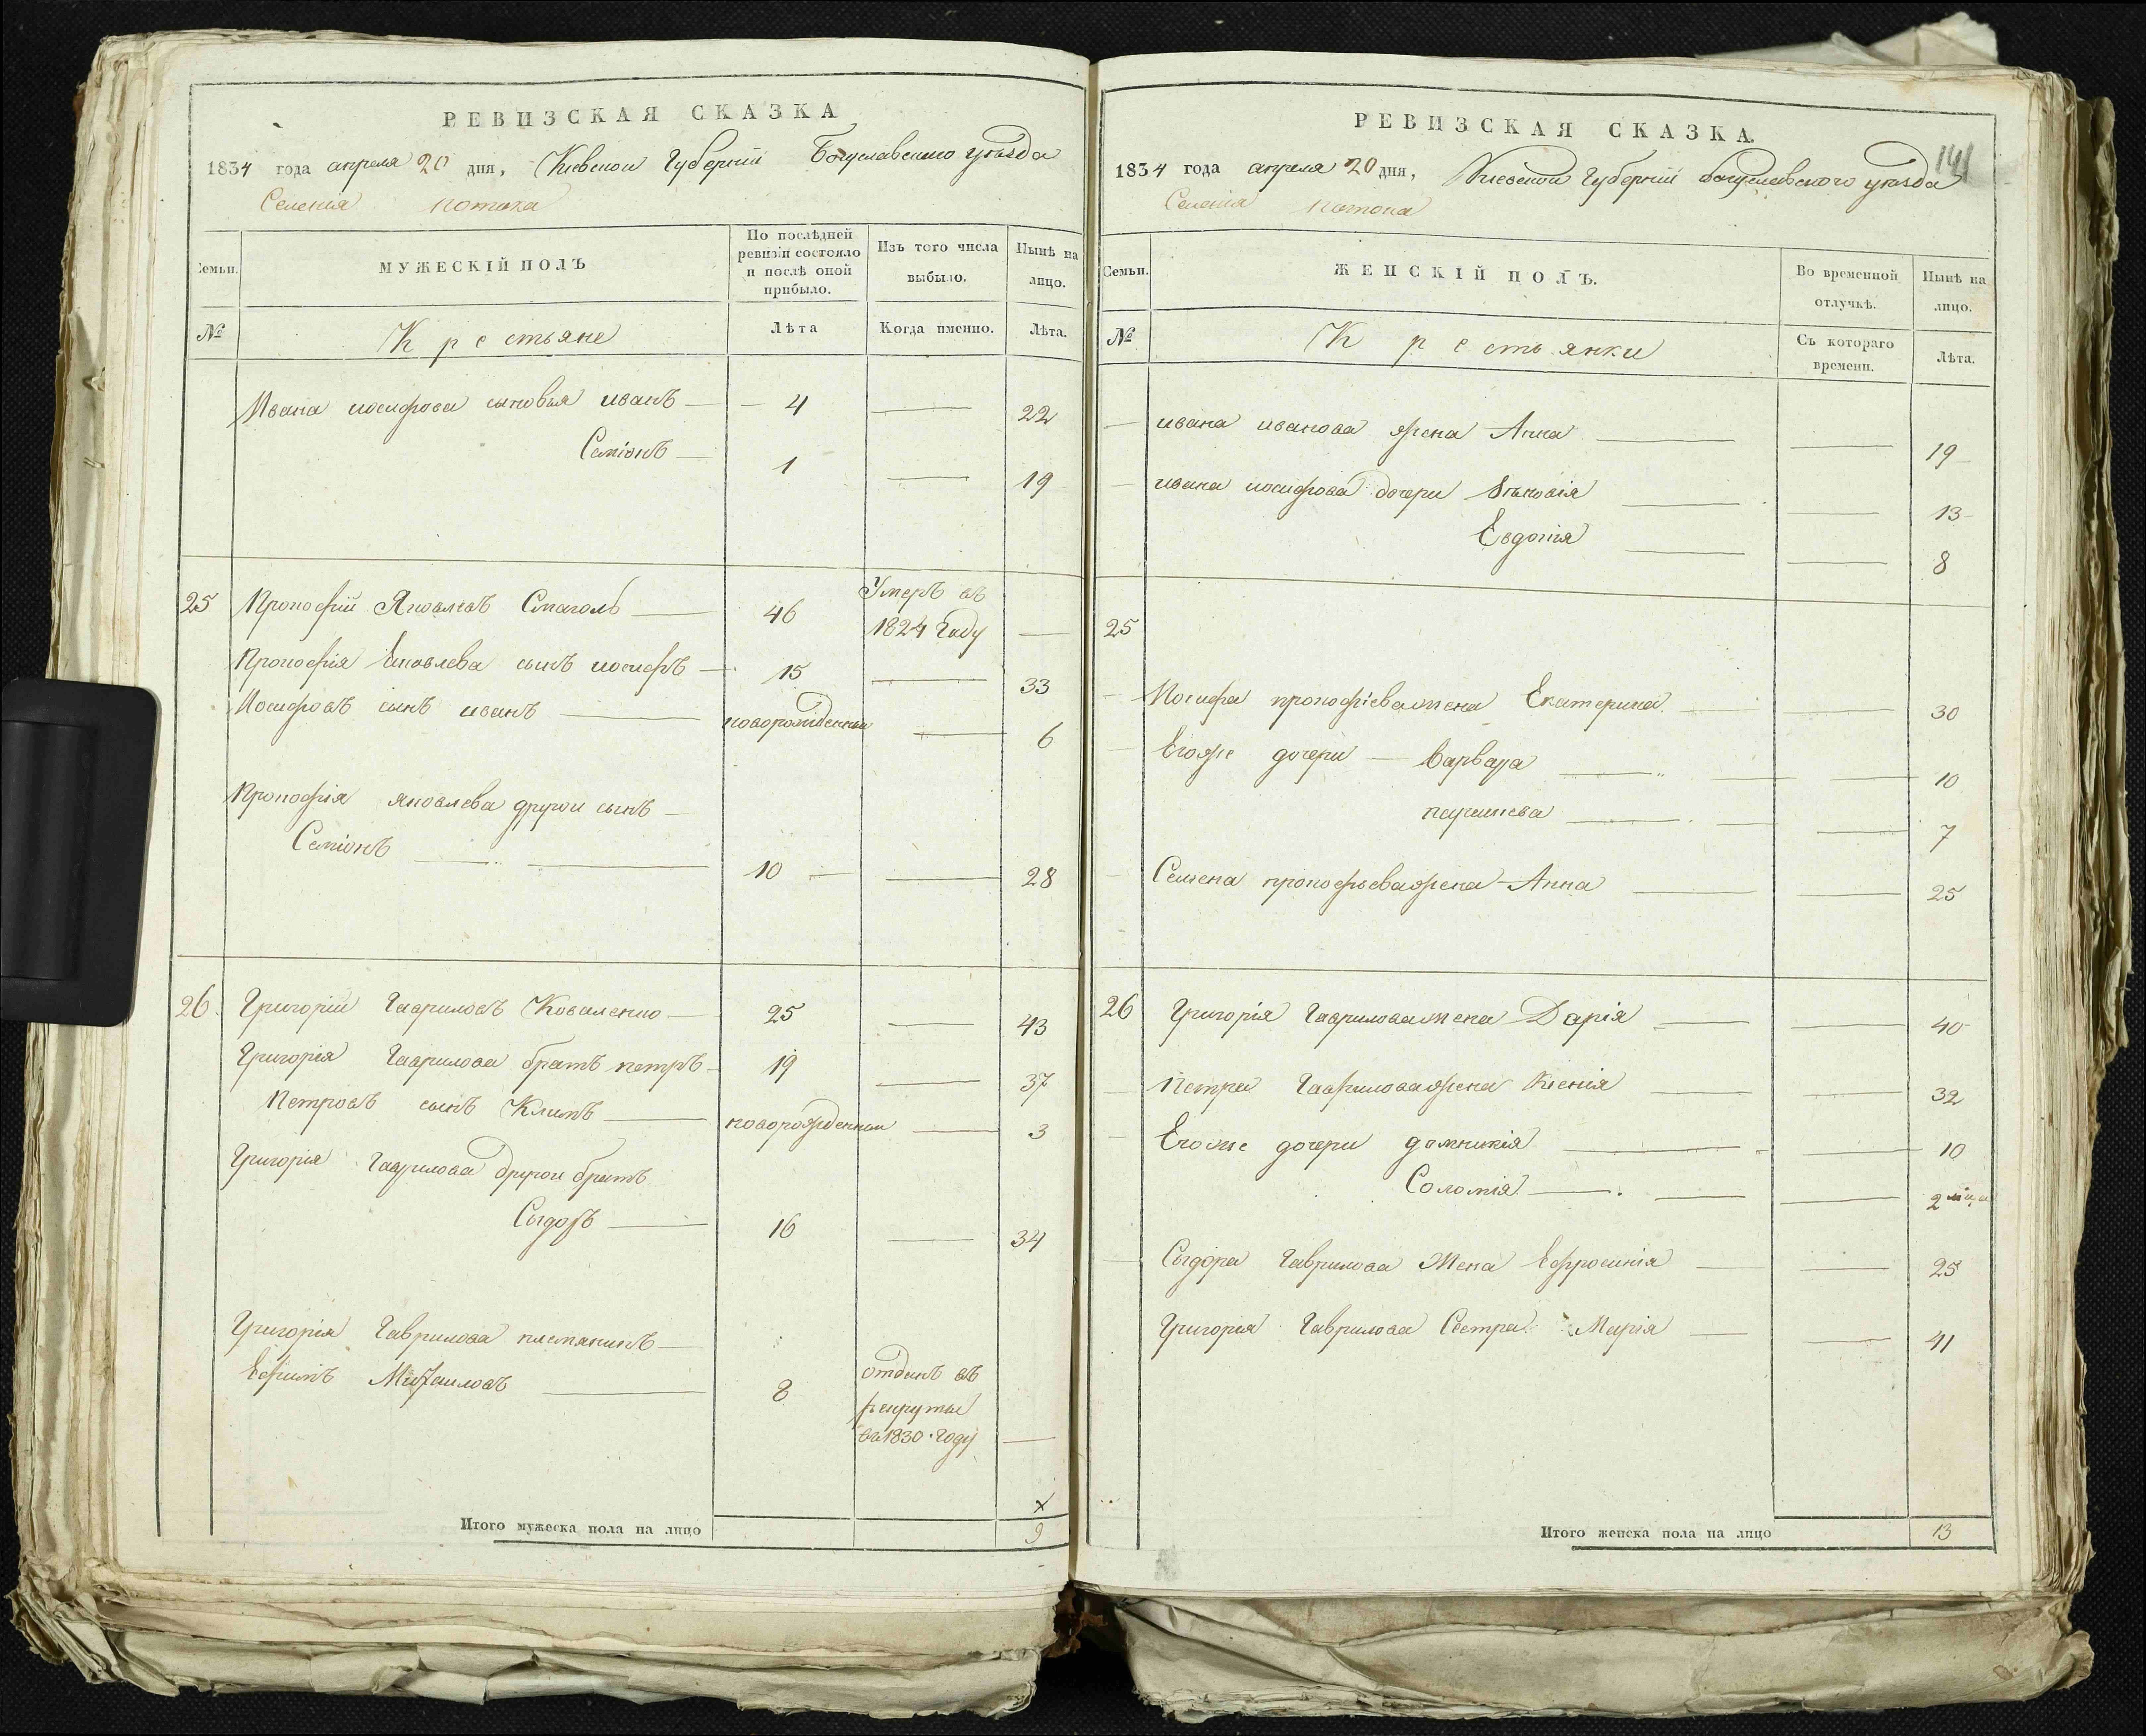 РЕВИЗСКАЯ СКАЗКА
1834 года апреля 20 дня, Киевской Губернии Богуславского уѣзда
Селения потока
Семьи.
МУЖЕСКІЙ ПОЛЪ
По послѣдней ревизіи состояло и послѣ оной прибыло.
Изъ того числа выбыло.
Нынѣ на лицо.
№
Крестьяне
Лѣта
Когда именно.
Лѣта.
Ивана иосифова сыновья иванъ 4 22
Семіонъ 1 19
25 Прокофій Яковлевъ Смаголь 46 Умеръ въ 1824 Году
Прокофія Яковлева сынъ иосифъ 15 33
Иосифовъ сынъ иванъ новорожденный 6
Прокофія яковлева другой сынъ
Семіонъ 10 28
26. Григорій Гавриловъ Коваленко 25 43
Григорія Гаврилова братъ петръ 19 37
Петровъ сынъ Климъ новорожденный 3
Григорія Гаврилова другой братъ
Сыдоръ 16 34
Григорія Гаврилова племяникъ
Ефимъ Михаиловъ 8 отданъ въ рекруты в 1830 Году
х
Итого мужеска пола на лицо 9
РЕВИЗСКАЯ СКАЗКА.
141
1834 года апреля 20 дня, Киевской Губерніи Богуславского уѣзда
Селенія потока
Семьи.
ЖЕНСКІЙ ПОЛЪ.
Во временной отлучкѣ.
Нынѣ на лицо.
№
Крестьянки
Съ котораго времени.
Лѣта.
ивана иванова жена Анна 19
ивана иосифова дочери 13
Евдокія 8
25
Иосифа прокофіева жена Екатерина 30
Егоже дочери Варвара 10
парашкева 7
Семена прокофьева жена Анна 25
26 Григорія Гаврилова жена Дарія 40
Петра Гаврилова жена Ксенія 32
Егоже дочери домникія 10
Соломія 2
Сыдора Гаврилова Жена Ефросинія 25
Григорія Гаврилова Сестра Марія 41
Итого женска пола на лицо 13